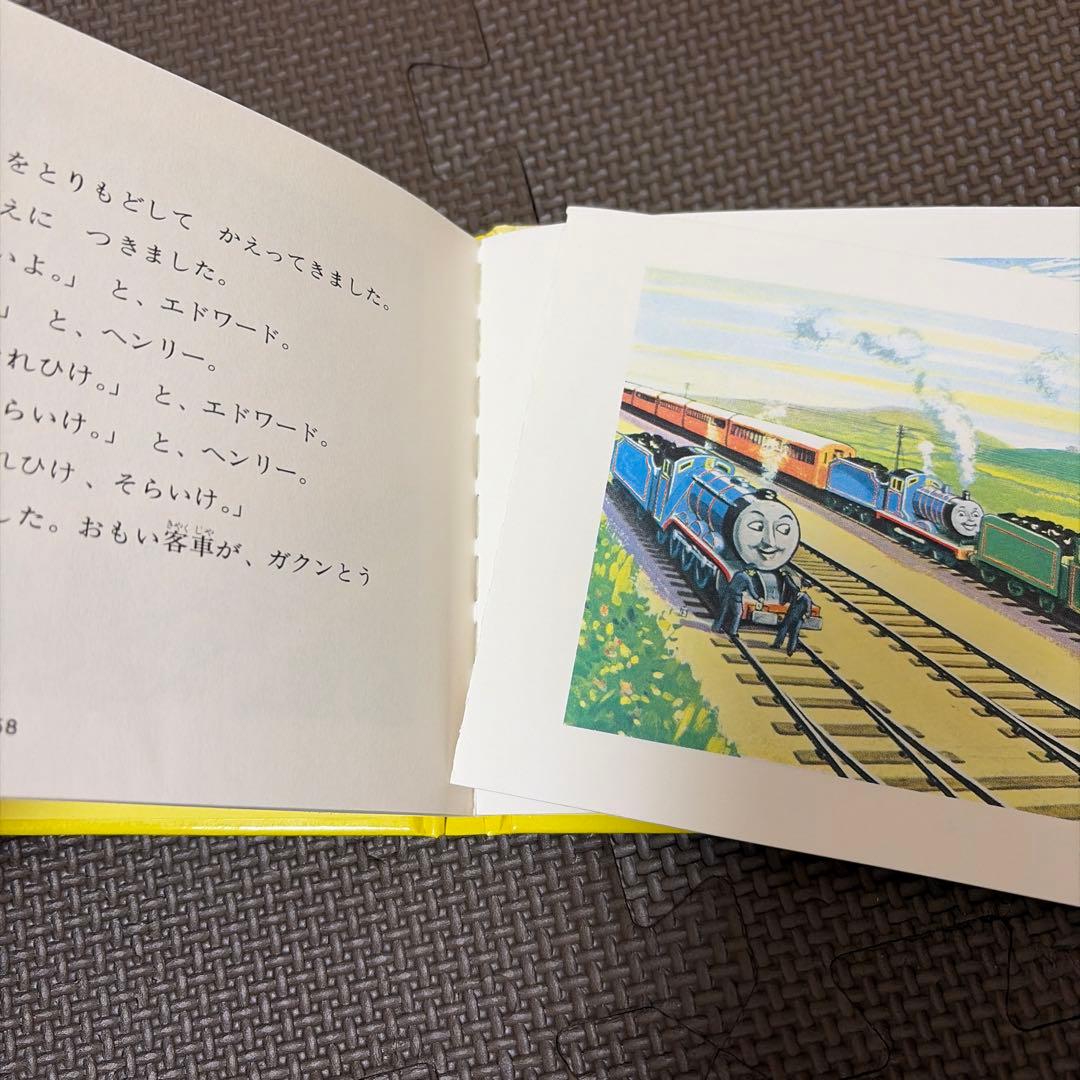 をとりもどして　かえってきました。
えに　つきました。
いよ。」　と、エドワード。
」　と、ヘンリー。
れひけ。」　と、エドワード。
らいけ。」　と、ヘンリー。
れひけ、そらいけ。」
した。おもい客車が、ガクンとう
きゃくしゃ
58